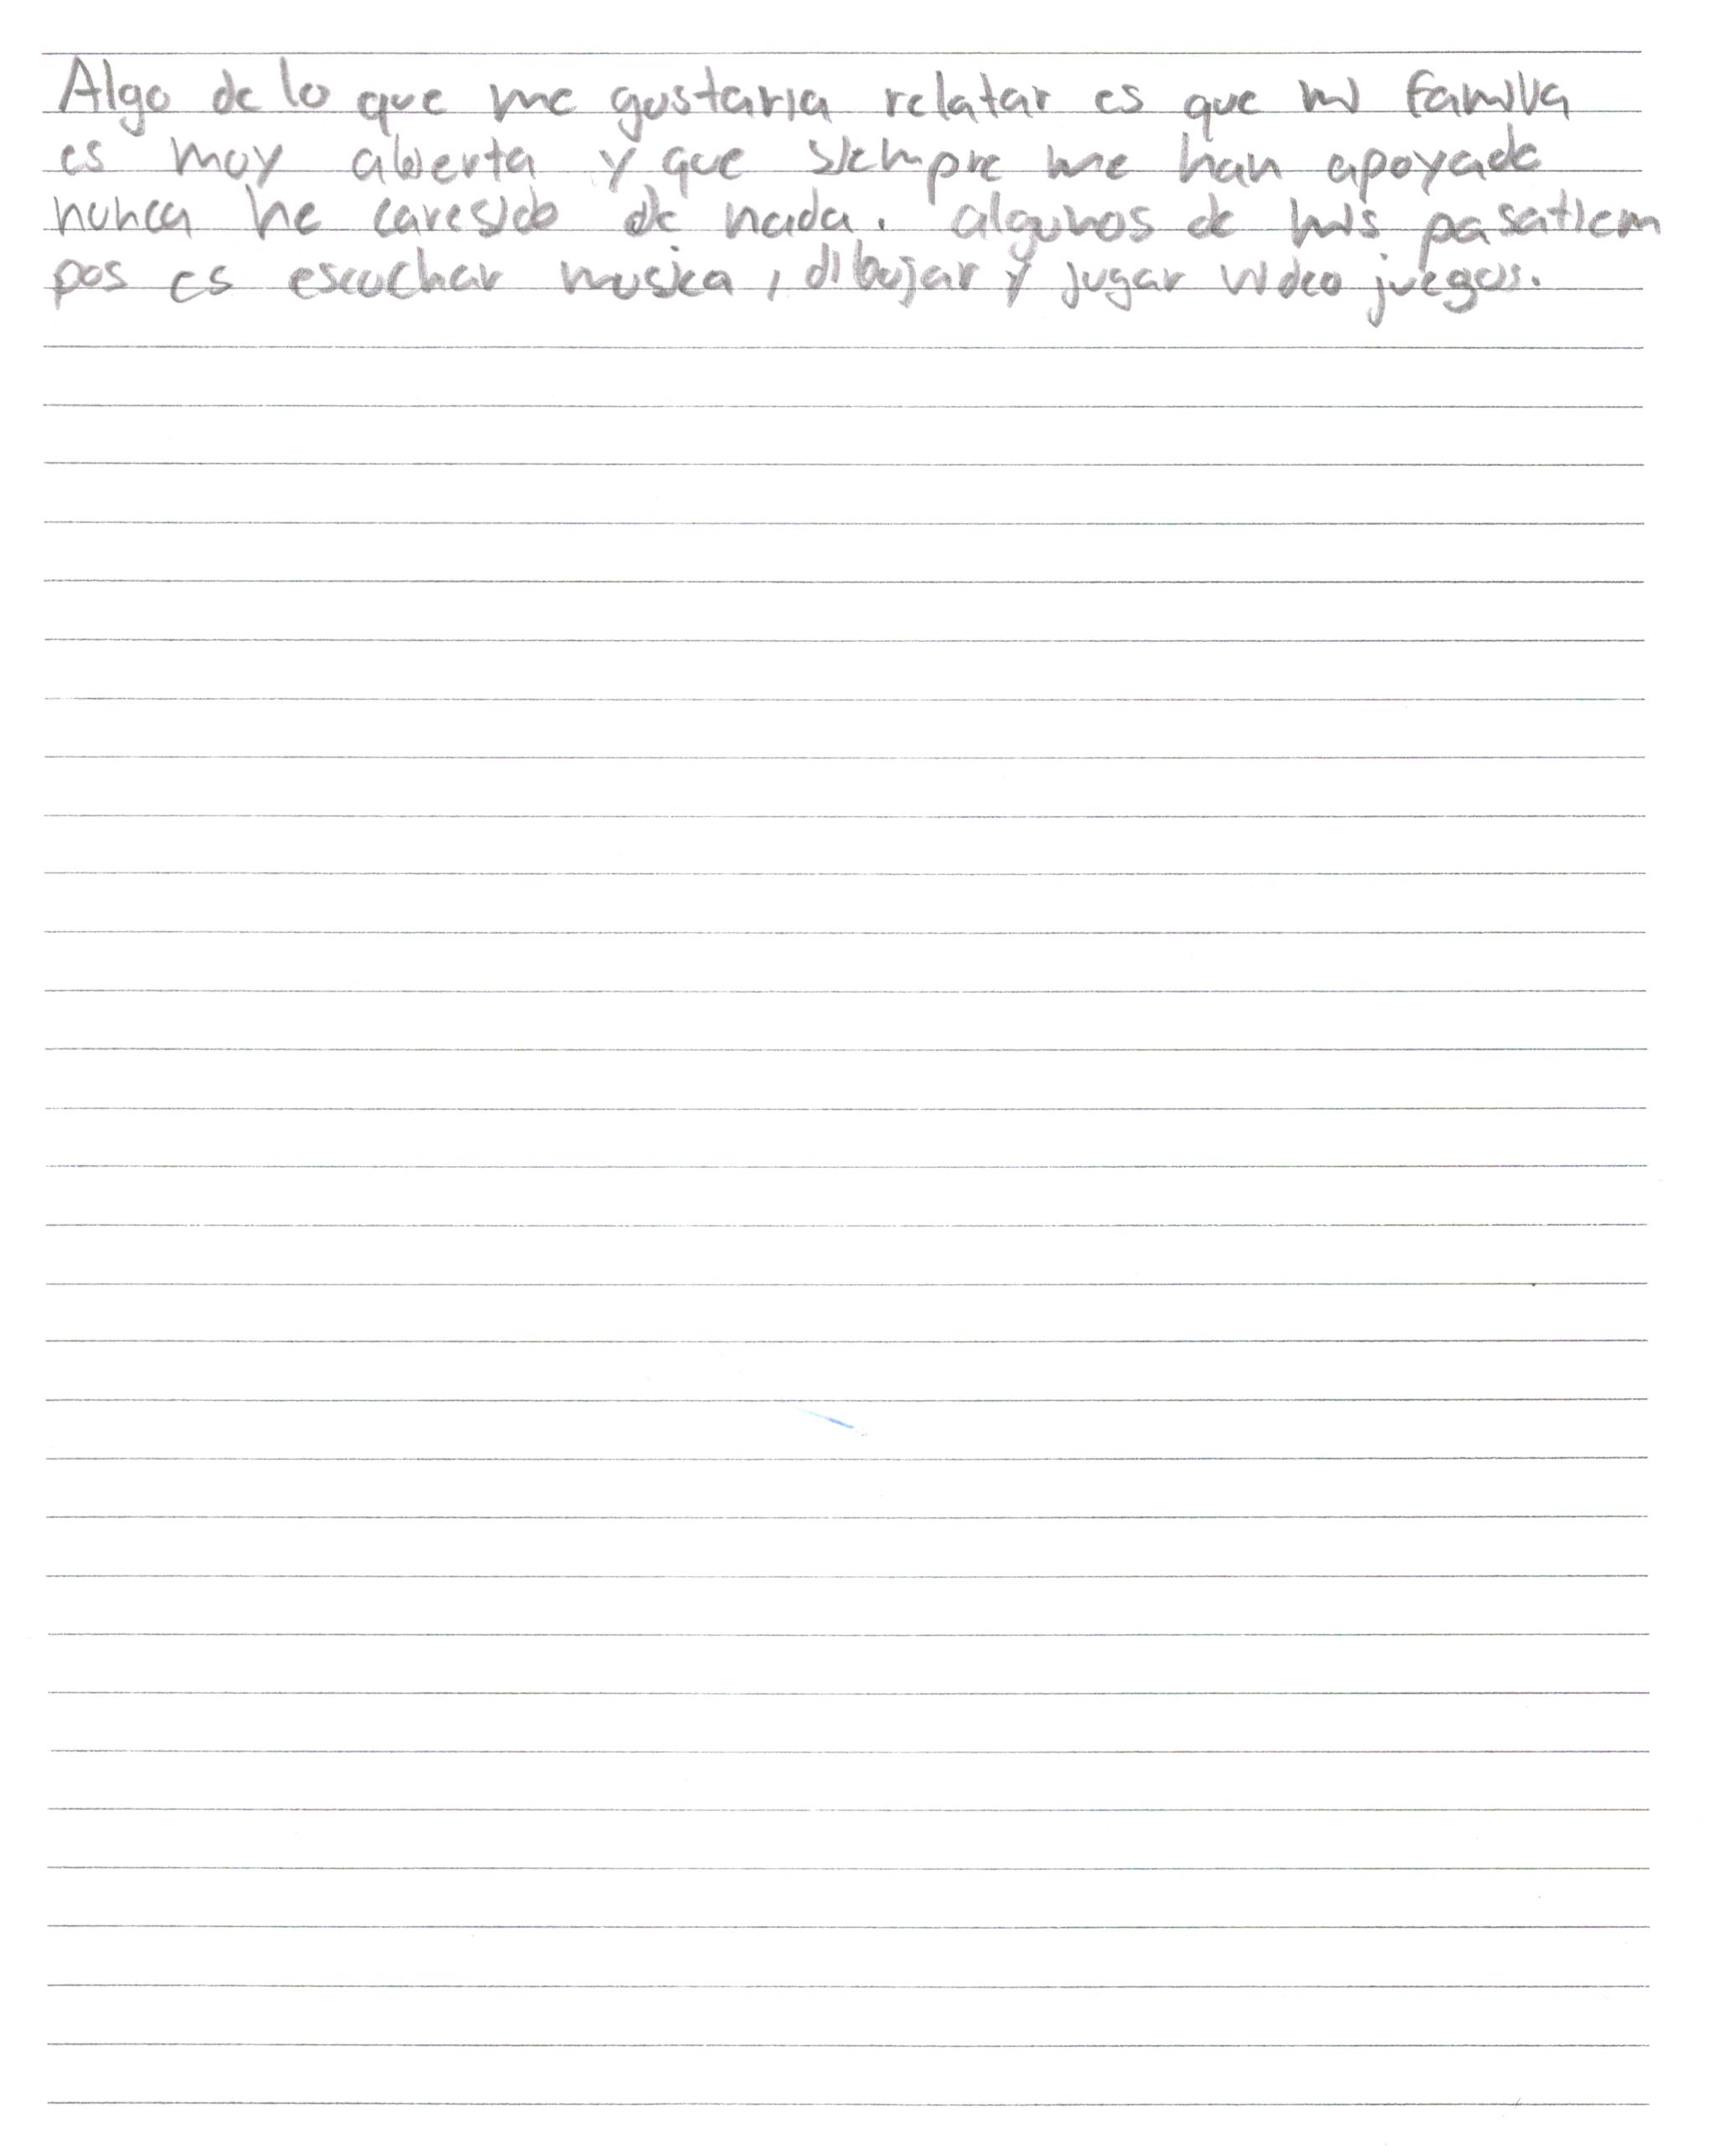 Algo de lo que me gustaria relatar es que mi familia
es muy abierta y que siempre me han apoyado
nunca he caresido de nada. algunos de mis pasatiem
pos es escuchar musica, dibujar y jugar video juegos.